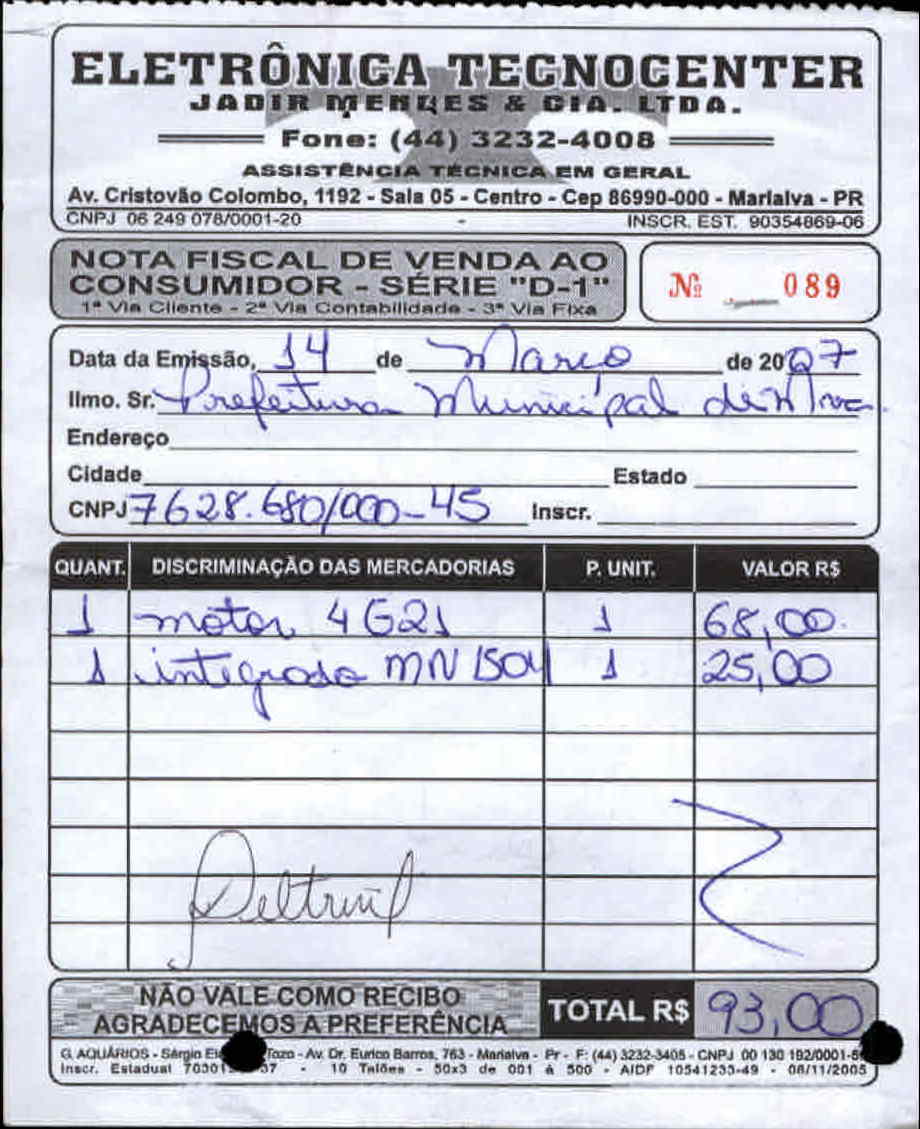 ELETRÔNICA TECNOCENTER
JADIR MENDES & CIA. LTDA.
Fone: (44) 3232-4008
ASSISTÊNCIA TÉCNICA EM GERAL
Av. Cristovão Colombo, 1192 - Sala 05 - Centro - Cep 86990-000 - Marialva - PR
CNPJ 06 249 078/0001-20 - INSCR. EST. 90354869-06
NOTA FISCAL DE VENDA AO
CONSUMIDOR - SÉRIE "D-1"
1ª Via Cliente - 2ª Via Contabilidade - 3ª Via Fixa
Nº 089
Data da Emissão, 14 de Março de 2007
Ilmo. Sr. Prefeitura Municipal de Mva.
Endereço
Cidade Estado
CNPJ 7628.680/000-45 Inscr.
QUANT. DISCRIMINAÇÃO DAS MERCADORIAS P. UNIT. VALOR R$
1 motor 4G21 1 68,00
1 integrado MN 1504 1 25,00
NÃO VALE COMO RECIBO
AGRADECEMOS A PREFERÊNCIA
TOTAL R$ 93,00
G. AQUÁRIOS - Sérgio Tozo - Av. Dr. Eurico Barros, 763 - Marialva - Pr - F: (44) 3232-3405 - CNPJ 00 130 192/0001-
Inscr. Estadual - 10 Talões - 50x3 de 001 á 500 - AIDF 10541233-49 - 08/11/2005